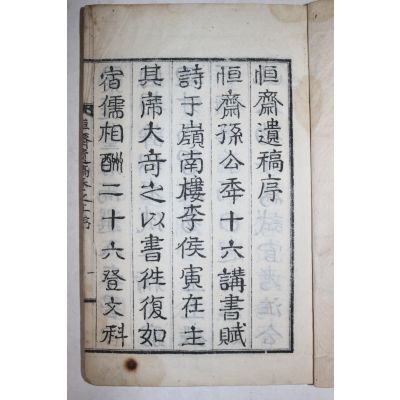 恒齋遺稿序
恒齋孫公年十六講書賦
詩于嶺南樓李侯寅在主
其席大奇之以書徃復如
宿儒相酬二十六登文科